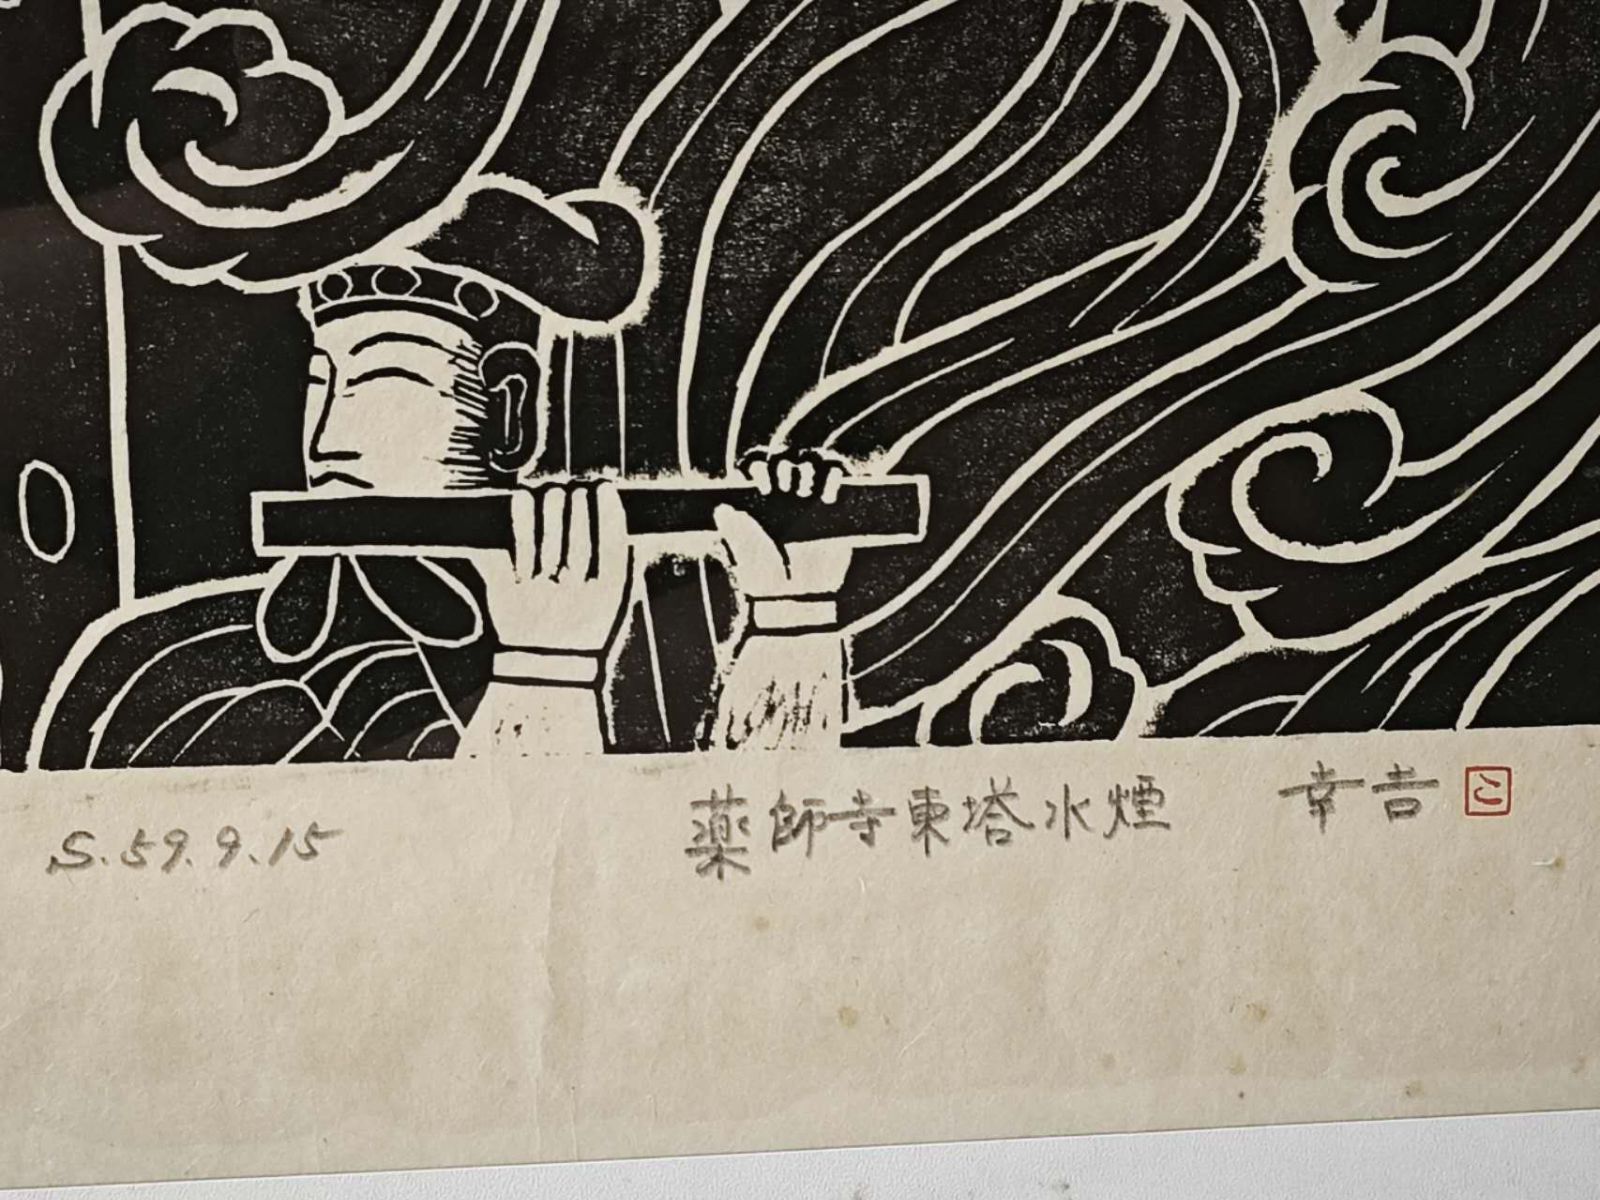 S.59.9.15
薬師寺東塔水煙 幸吉
こ